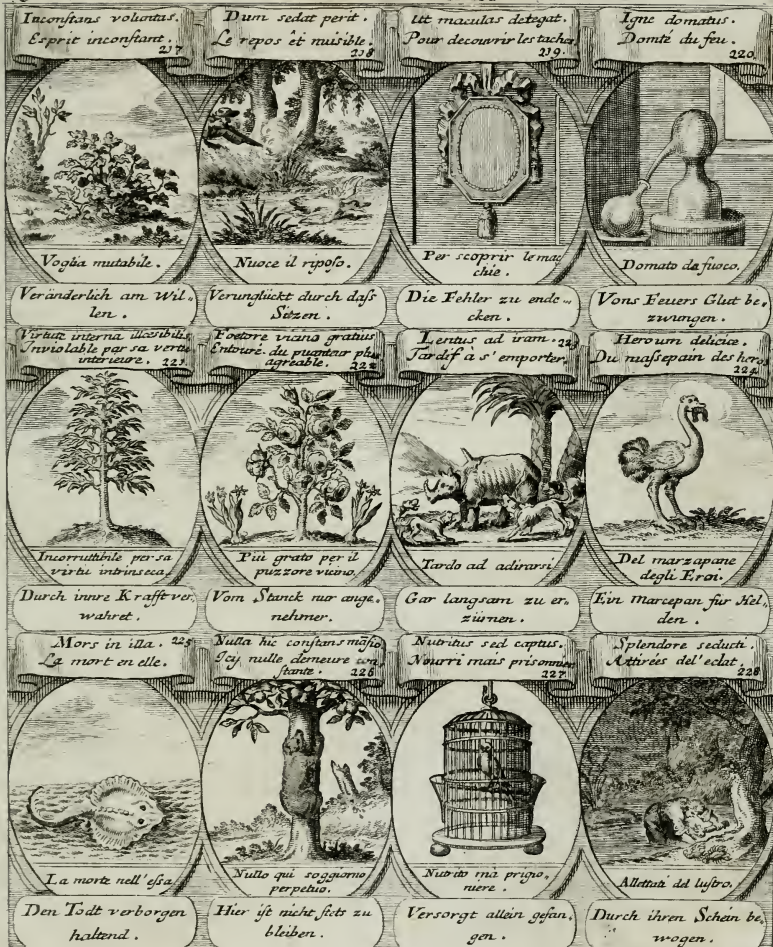 Inconstans voluntas.
Esprit inconstant.
217
Voglia mutabile.
Veränderlich am Wil-
len.
Dum sedat perit.
Le repos êt nuisible.
218
Nuoce il riposo.
Verunglückt durch dass
Sitzen.
Ut maculas detegat.
Pour decouvrir les taches
219.
Per scoprir le mac
chie.
Die Fehler zu ende-
cken.
Igne domatus.
Domté du feu.
220.
Domato da fuoco.
Vons Feuers Glut be-
zwungen.
Virtute interna illæsibilis
Inviolable par sa vertu
interieure. 221
Incorruttibile per sa
virtu intrinseca.
Durch innre Krafft ver-
wahret.
Foetore vicino gratius
Entouré du puanteur plus
agreable. 222
Più grato per il
puzzore vicino.
Vom Stanck nur ange-
nehmer.
Lentus ad iram. 223
Tardif à s'emporter.
Tardo ad adirarsi
Gar langsam zu er-
zürnen.
Heroum deliciæ.
Du massepain des heros
224
Del marzapane
degli Eroi.
Ein Marcepan für Hel-
den.
Mors in illa. 225
La mort en elle.
La morte nell'essa
Den Todt verborgen
haltend.
Nulla hic constans mansio
Icy nulle demeure con
stante. 226
Nullo qui soggiorno
perpetuo.
Hier ist nicht stets zu
bleiben.
Nutritus sed captus.
Nourri mais prisonnier
227
Nutrito mà prigio-
niere.
Versorgt allein gefan-
gen.
Splendore seducti.
Attirées del'eclat.
228
Allettati del lustro.
Durch ihren Schein be-
wogen.